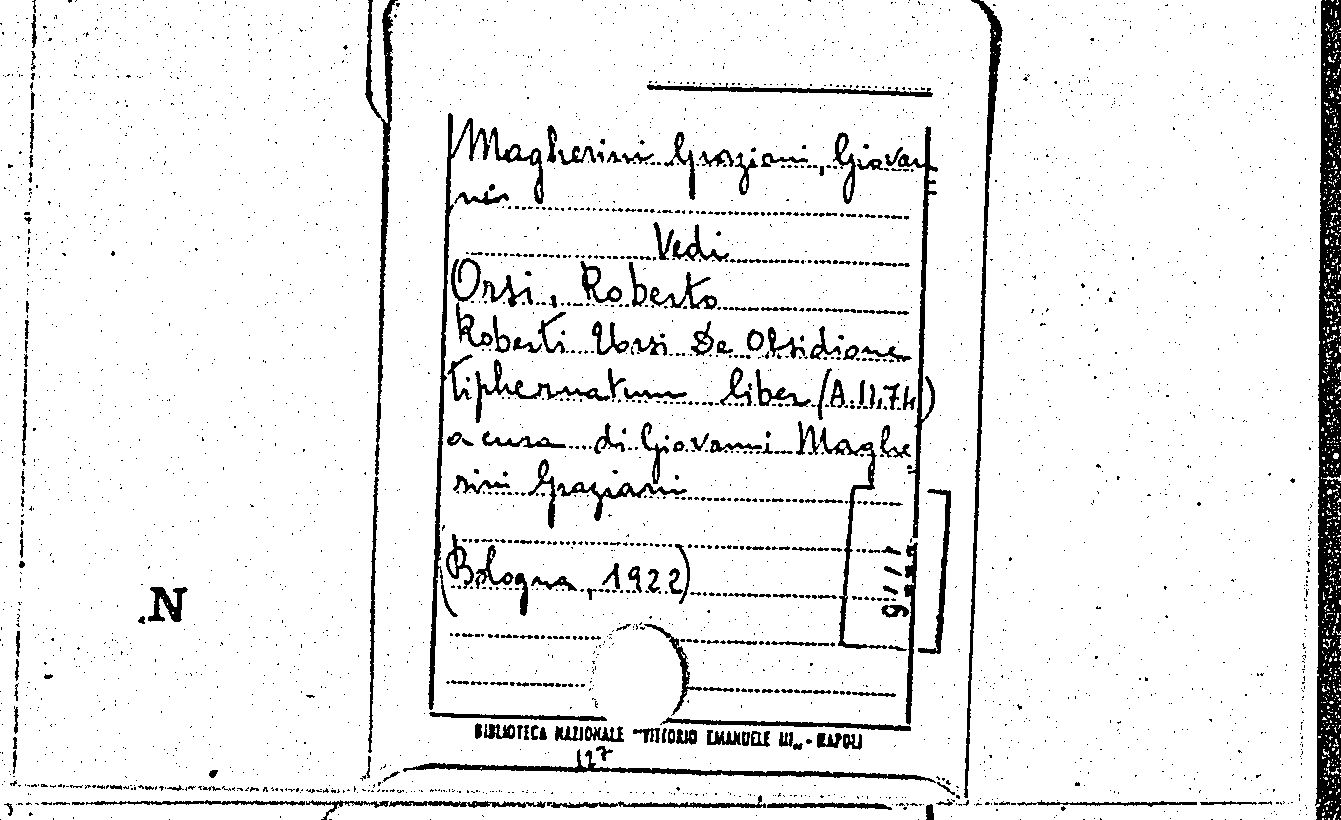 Magherini Graziani, Giovan
ni
Vedi
Orsi, Roberto
Roberti Ursi De Obsidione
tiphernatum liber (A.1474)
a cura di Giovanni Maghe
rini Graziani
(Bologna, 1922)
.N
BIBLIOTECA NAZIONALE "VITTORIO EMANUELE III" - NAPOLI
127